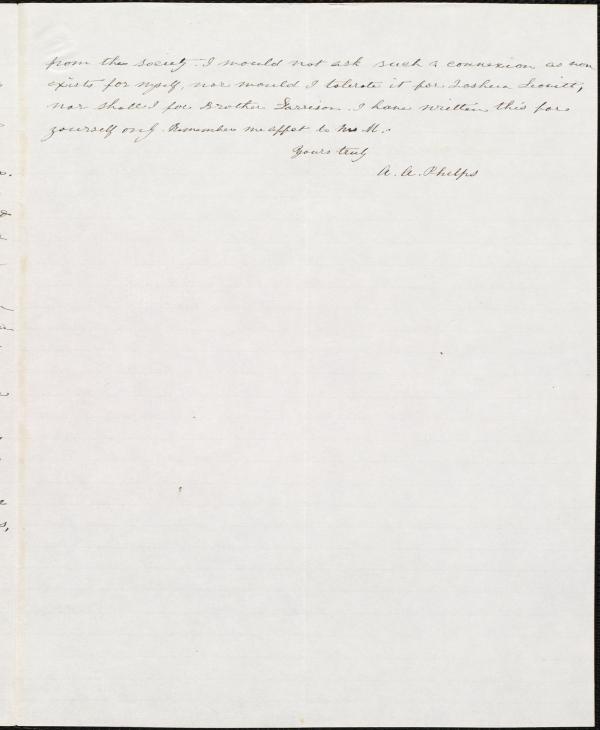 from the society. I would not ask such a connexion as now
exists for myself, nor would I tolerate it for Joshua Leavitt,
nor shall I for Brother Garrison. I have written this for
yourself only. Remember me affect to Mrs M.
Yours truly
A. A. Phelps